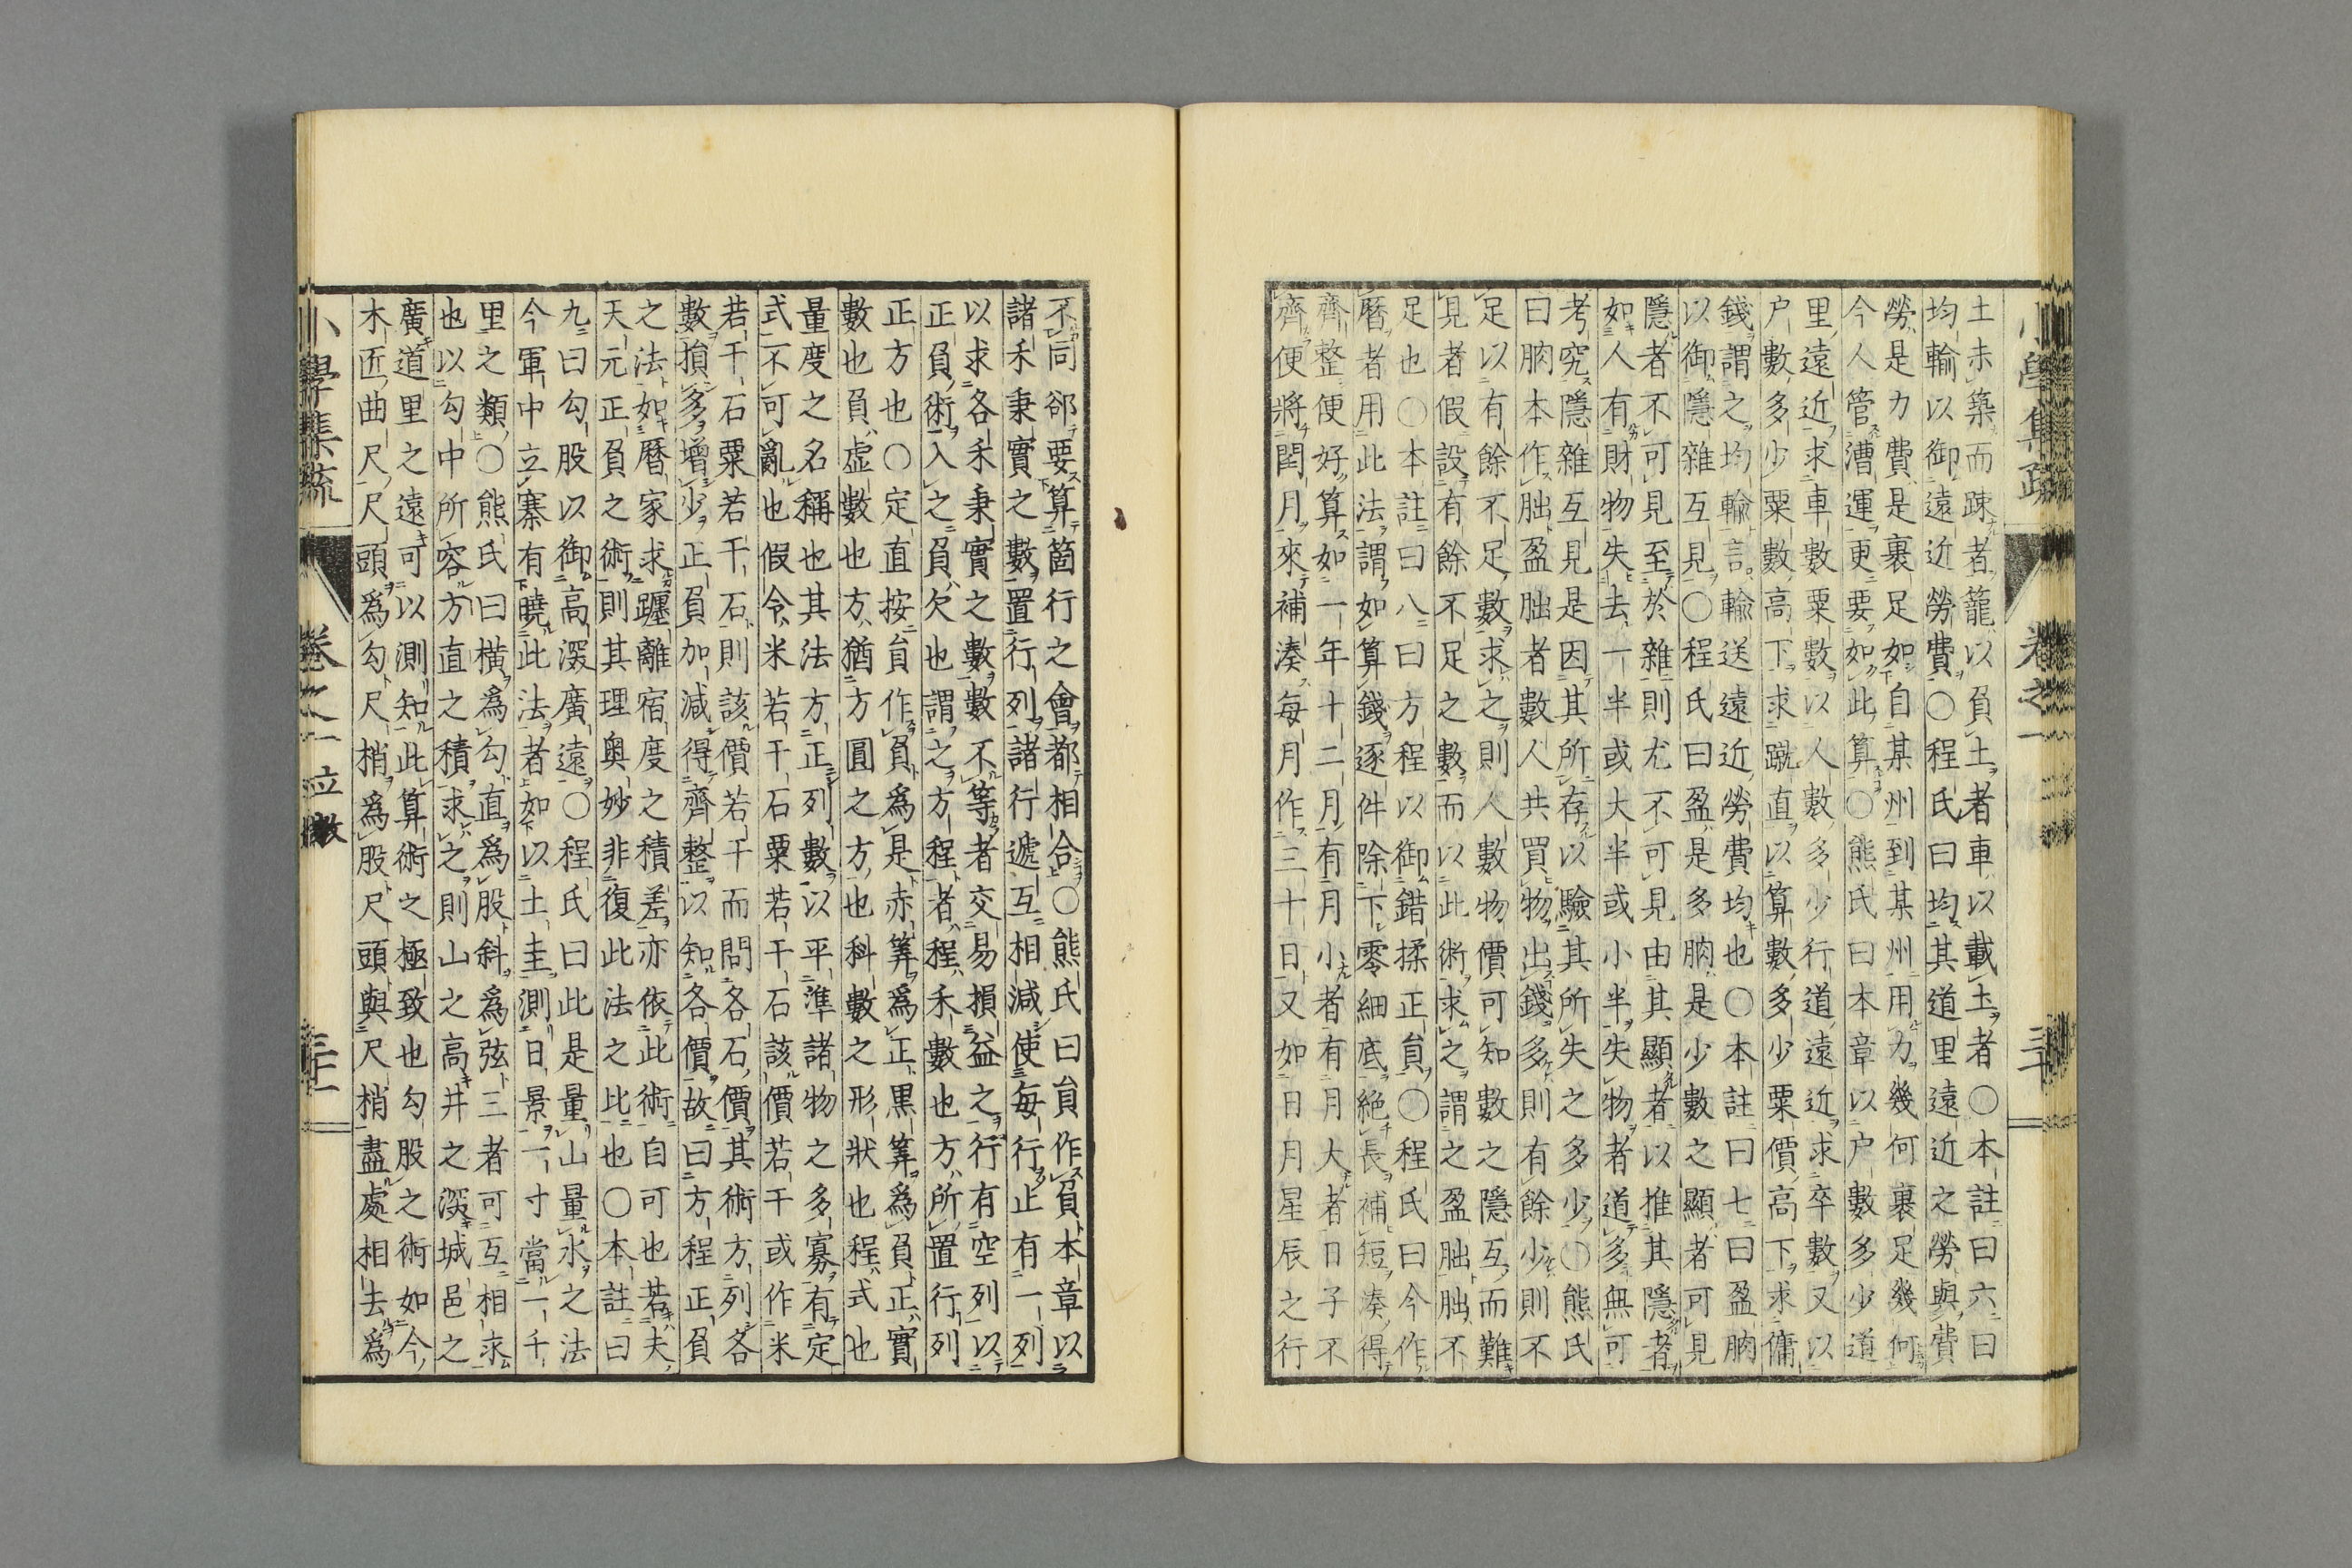 土未築而踈者籠以負土者車以載土者○本註曰六曰
均輸以御遠近勞費○程氏曰均其道里遠近之勞與費
勞是力費是裹足如自某州到某州用力幾何裹足幾何
今人管漕運更要如此算○熊氏曰本章以户數多少道
里遠近求車數粟數以人數多少行道遠近求卒數又以
户數多少粟數高下求蹴直以算數多少粟價高下求傭
錢謂之均輸言輸送遠近勞費均也○本註曰七曰盈朒
以御隱雜互見○程氏曰盈是多朒是少數之顯者可見
隱者不可見至於雜則尤不可見由其顯者以推其隱者
如人有財物失去一半或大半或小半失物者道多無可
考究隱雜互見是因其所存以驗其所失之多少○熊氏
曰朒本作朏盈朏者數人共買物出錢多則有餘少則不
足以有餘不足數求之則人數物價可知數之隱互而難
見者假設有餘不足之數而以此術求之謂之盈朏朏不
足也○本註曰八曰方程以御錯揉正負○程氏曰今作
曆者用此法謂如算錢逐件除下零細底絶長補短湊得
齊整便好算如一年十二月有月小者有月大者日子不
齊便將閏月來補湊每月作三十日又如日月星辰之行
不同郤要算箇行之會都相合○熊氏曰負作負本章以
諸禾秉實之數置行列諸行遞互相減使每行止有一列
以求各禾秉實之數數不等者交易損益之行有空列以
正負術入之負欠也謂之方程者程禾數也方所置行列
正方也○定直按負作負爲是赤筭爲正黒筭爲負正實
數也負虚數也方猶方圓之方也科數之形狀也程式也
量度之名稱也其法方正列數以平準諸物之多寡有定
式不可亂也假令米若干石粟若干石該價若干或作米
若干石粟若干石則該價若干而問各石價其術方列各
數損多增少正負加減得齊整以知各價故曰方程正負
之法如曆家求躔離宿度之積差亦依此術自可也若夫
天元正負之術則其理奥妙非復此法之比也○本註曰
九曰勾股以御高深廣遠○程氏曰此是量山量水之法
今軍中立寨有曉此法者如以土圭測日景一寸當一千
里之類○熊氏曰橫爲勾直爲股斜爲弦三者可互相求
也以勾中所容方直之積求之則山之高井之深城邑之
廣道里之遠可以測知此算術之極致也勾股之術如今
木匠曲尺尺頭爲勾尺梢爲股尺頭與尺梢盡處相去爲
小學集疏 卷之一 立敎